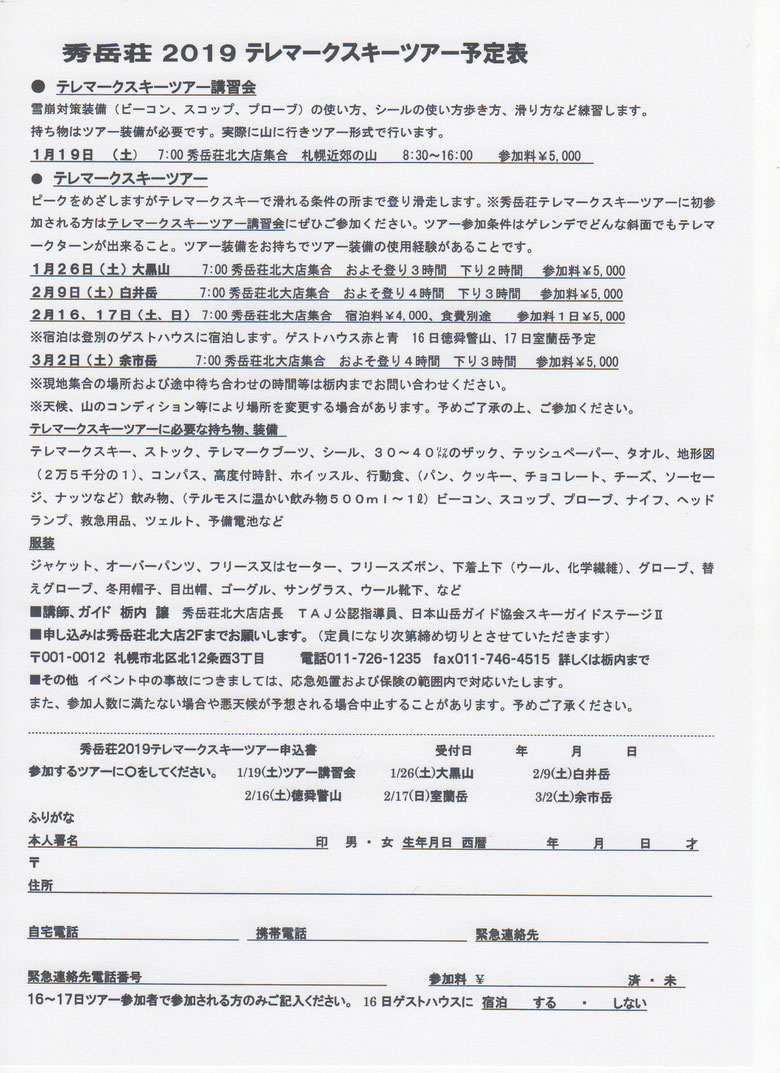 秀岳荘 2019 テレマークスキーツアー予定表
● テレマークスキーツアー講習会
雪崩対策装備（ビーコン、スコップ、プローブ）の使い方、シールの使い方歩き方、滑り方など練習します。
持ち物はツアー装備が必要です。実際に山に行きツアー形式で行います。
1月19日　（土）　7:00 秀岳荘北大店集合　札幌近郊の山　　8:30～16:00　　参加料￥5,000
● テレマークスキーツアー
ピークをめざしますがテレマークスキーで滑れる条件の所まで登り滑走します。※秀岳荘テレマークスキーツアーに初参
加される方はテレマークスキーツアー講習会にぜひご参加ください。ツアー参加条件はゲレンデでどんな斜面でもテレマ
ークターンが出来ること。ツアー装備をお持ちでツアー装備の使用経験があることです。
1月26日（土）大黒山　　7:00 秀岳荘北大店集合　およそ登り３時間　下り２時間　参加料￥5,000
2月9日（土）白井岳　　7:00 秀岳荘北大店集合　およそ登り４時間　下り３時間　参加料￥5,000
2月16、17日（土、日）　7:00 秀岳荘北大店集合　宿泊料￥4,000、食費別途　　参加料１日￥5,000
※宿泊は登別のゲストハウスに宿泊します。ゲストハウス赤と青　16日徳舜瞥山、17日室蘭岳予定
3月2日（土）余市岳　　7:00 秀岳荘北大店集合　およそ登り４時間　下り３時間　参加料￥5,000
※現地集合の場所および途中待ち合わせの時間等は栃内までお問い合わせください。
※天候、山のコンディション等により場所を変更する場合があります。予めご了承の上、ご参加ください。
テレマークスキーツアーに必要な持ち物、装備
テレマークスキー、ストック、テレマークブーツ、シール、３０～４０㍑のザック、テッシュペーパー、タオル、地形図
（２万５千分の１）、コンパス、高度付時計、ホイッスル、行動食、（パン、クッキー、チョコレート、チーズ、ソーセー
ジ、ナッツなど）飲み物、（テルモスに温かい飲み物５００ｍｌ～１ℓ）ビーコン、スコップ、プローブ、ナイフ、ヘッド
ランプ、救急用品、ツェルト、予備電池など
服装
ジャケット、オーバーパンツ、フリース又はセーター、フリースズボン、下着上下（ウール、化学繊維）、グローブ、替
えグローブ、冬用帽子、目出帽、ゴーグル、サングラス、ウール靴下、など
■講師、ガイド　栃内　譲　秀岳荘北大店店長　ＴＡＪ公認指導員、日本山岳ガイド協会スキーガイドステージⅡ
■申し込みは秀岳荘北大店2Fまでお願いします。（定員になり次第締め切りとさせていただきます）
〒001-0012　札幌市北区北12条西3丁目　　電話011-726-1235　fax011-746-4515　詳しくは栃内まで
■その他　イベント中の事故につきましては、応急処置および保険の範囲内で対応いたします。
また、参加人数に満たない場合や悪天候が予想される場合中止することがあります。予めご了承ください。
秀岳荘2019テレマークスキーツアー申込書　　受付日　　年　　月　　日
参加するツアーに〇をしてください。　1/19(土)ツアー講習会　　1/26(土)大黒山　　2/9(土)白井岳
2/16(土)徳舜瞥山　　2/17(日)室蘭岳　　3/2(土)余市岳
ふりがな
本人署名　　印　男・女　生年月日　西暦　　年　　月　　日　　才
〒
住所
自宅電話　　携帯電話　　緊急連絡先
緊急連絡先電話番号　　参加料　￥　　済・未
16～17日ツアー参加者で参加される方のみご記入ください。　16日ゲストハウスに　宿泊　する　・　しない